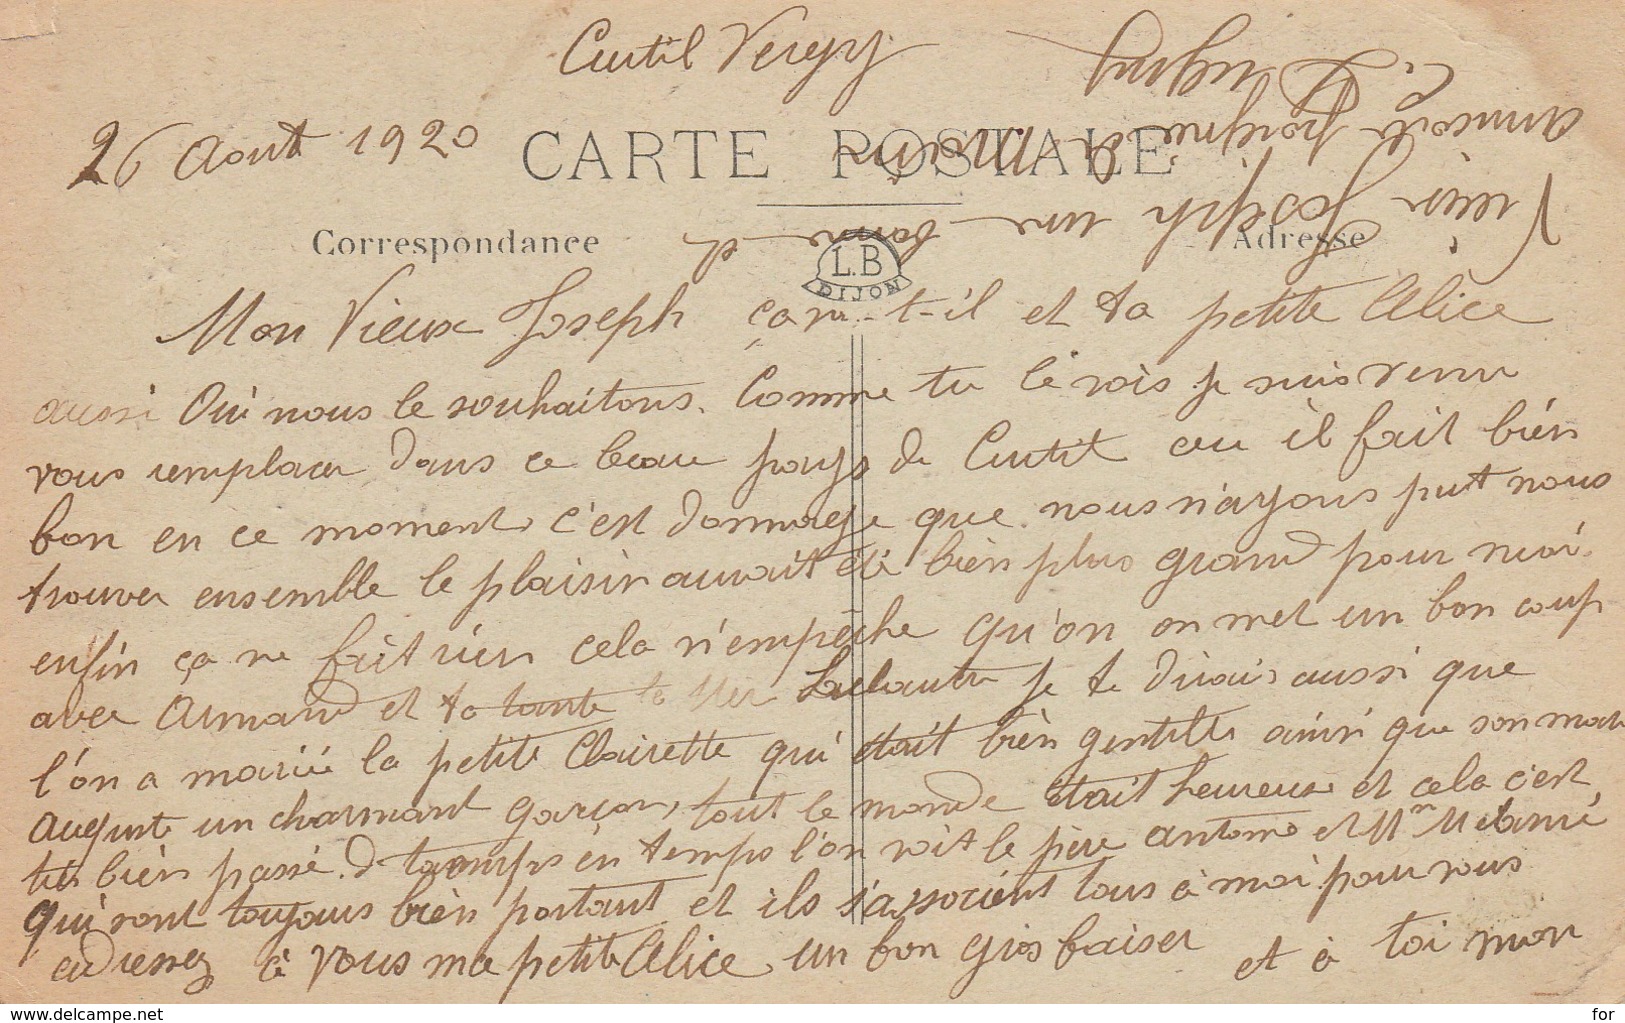 Curtil Vergy
26 Aout 1920
CARTE POSTALE
Correspondance
Adresse
L.B
DIJON
Mon Vieux Joseph ça va-t-il et ta petite Alice
aussi Oui nous le souhaitons. Comme tu le vois je suis venu
vous remplacer dans ce beau pays de Curtil ou il fait bien
bon en ce moment c'est dommage que nous n'ayons put nous
trouver ensemble le plaisir aurait été bien plus grand pour moi.
enfin ça ne fait rien cela n'empêche qu'on en met un bon coup
avec Armand et ta tante la Mer je te dirais aussi que
l'on a mariée la petite Clairette qui était bien gentille ainsi que son mari
Auguste un charmant garçon, tout le monde était heureux et cela c'est
très bien passé. de temps en temps l'on voit le père antoine et Mme Mélanie
qui sont toujours bien portant et ils s'associent tous à moi pour vous
adressez à vous ma petite Alice un bon gros baiser et à toi mon
Vieux Joseph une bonne et
amicale poignée de main
C. Dugny
www.delcampe.net
for